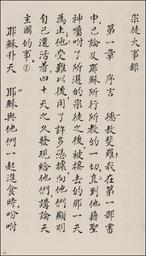 宗徒大事錄
第一章 序言 德敖斐羅，我在第一部書
中，已論及耶穌所行所教的一切，直到他藉聖
神囑咐了所選的宗徒之後，被接去的那一天
為止；他受難以後，用了許多憑據，向他們顯明
自己還活着，四十天之久發現給他們，講論天
主國的事。①
耶穌升天 耶穌與他們一起進食時，吩咐